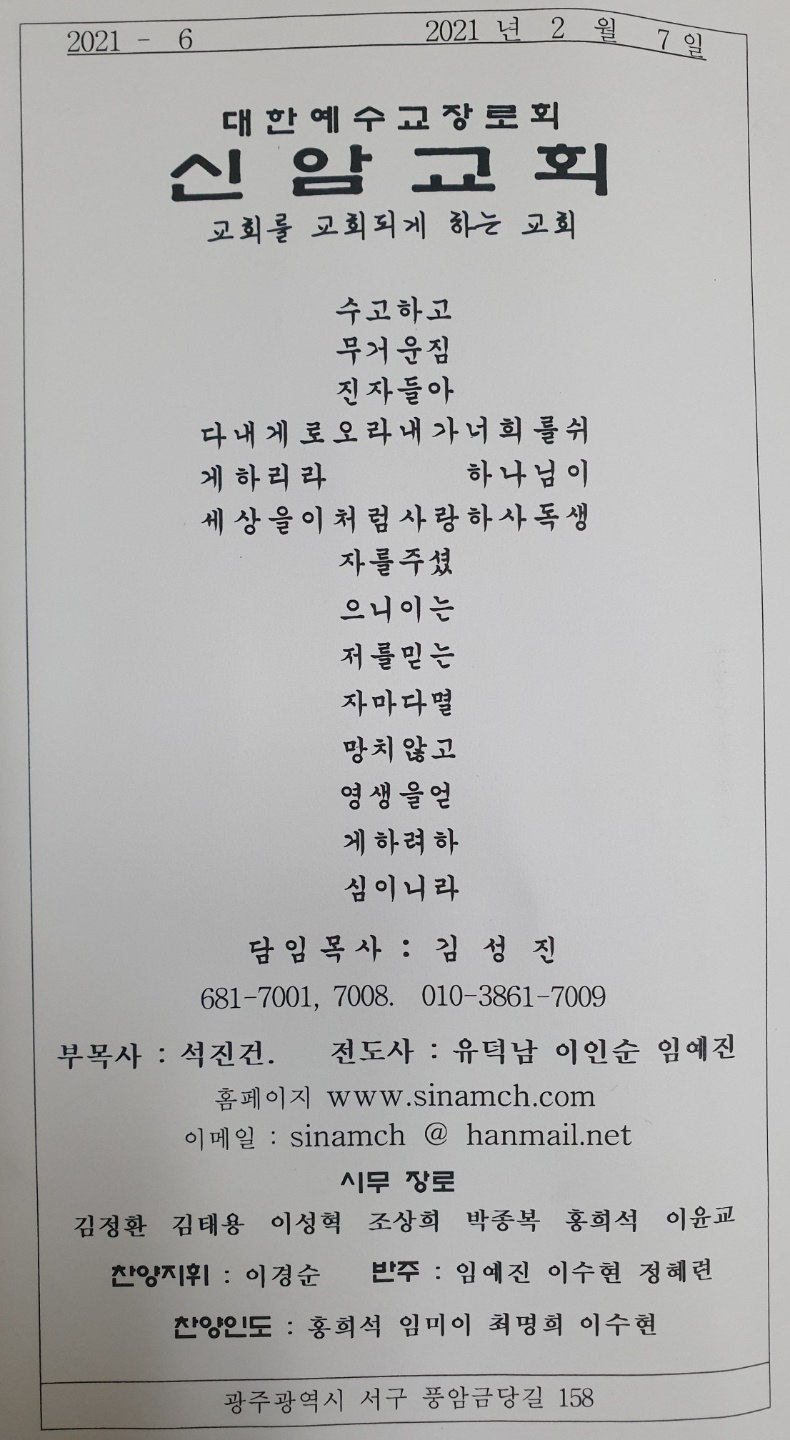 2021 - 6 2021 년 2 월 7 일
대한예수교장로회
신암교회
교회를 교회되게 하는 교회
수고하고
무거운짐
진자들아
다내게로오라내가너희를쉬
게하리라 하나님이
세상을이처럼사랑하사독생
자를주셨
으니이는
저를믿는
자마다멸
망치않고
영생을얻
게하려하
심이니라
담임목사 : 김 성 진
681-7001, 7008. 010-3861-7009
부목사 : 석진건. 전도사 : 유덕남 이인순 임예진
홈페이지 www.sinamch.com
이메일 : sinamch @ hanmail.net
시무 장로
김정환 김태용 이성혁 조상희 박종복 홍희석 이윤교
찬양지휘 : 이경순 반주 : 임예진 이수현 정혜련
찬양인도 : 홍희석 임미이 최명희 이수현
광주광역시 서구 풍암금당길 158